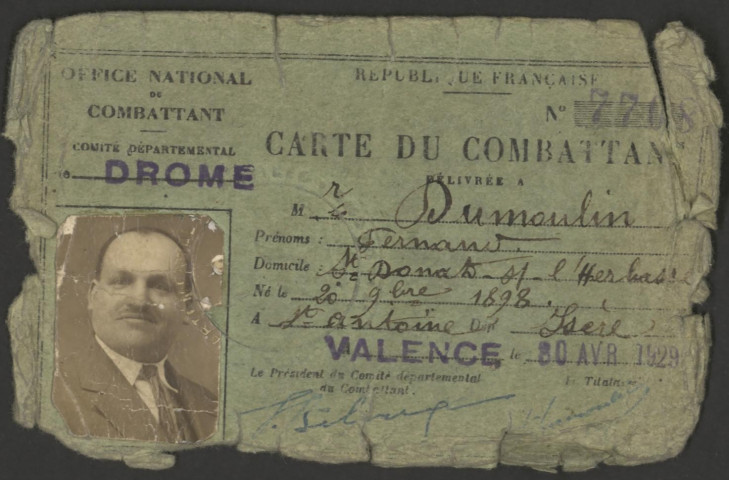 OFFICE NATIONAL
DU
COMBATTANT
COMITÉ DÉPARTEMENTAL
DROME
RÉPUBLIQUE FRANÇAISE
N° 7718
CARTE DU COMBATTANT
DÉLIVRÉE A
M r Dumoulin
Prénoms : Fernand.
Domicile : St Donat-s/-l'Herbasse
Né le 20 9bre 1898.
A St Antoine Dépt Isère
VALENCE, le 30 AVR 1929
Le Président du Comité départemental
du Combattant.
Le Titulaire